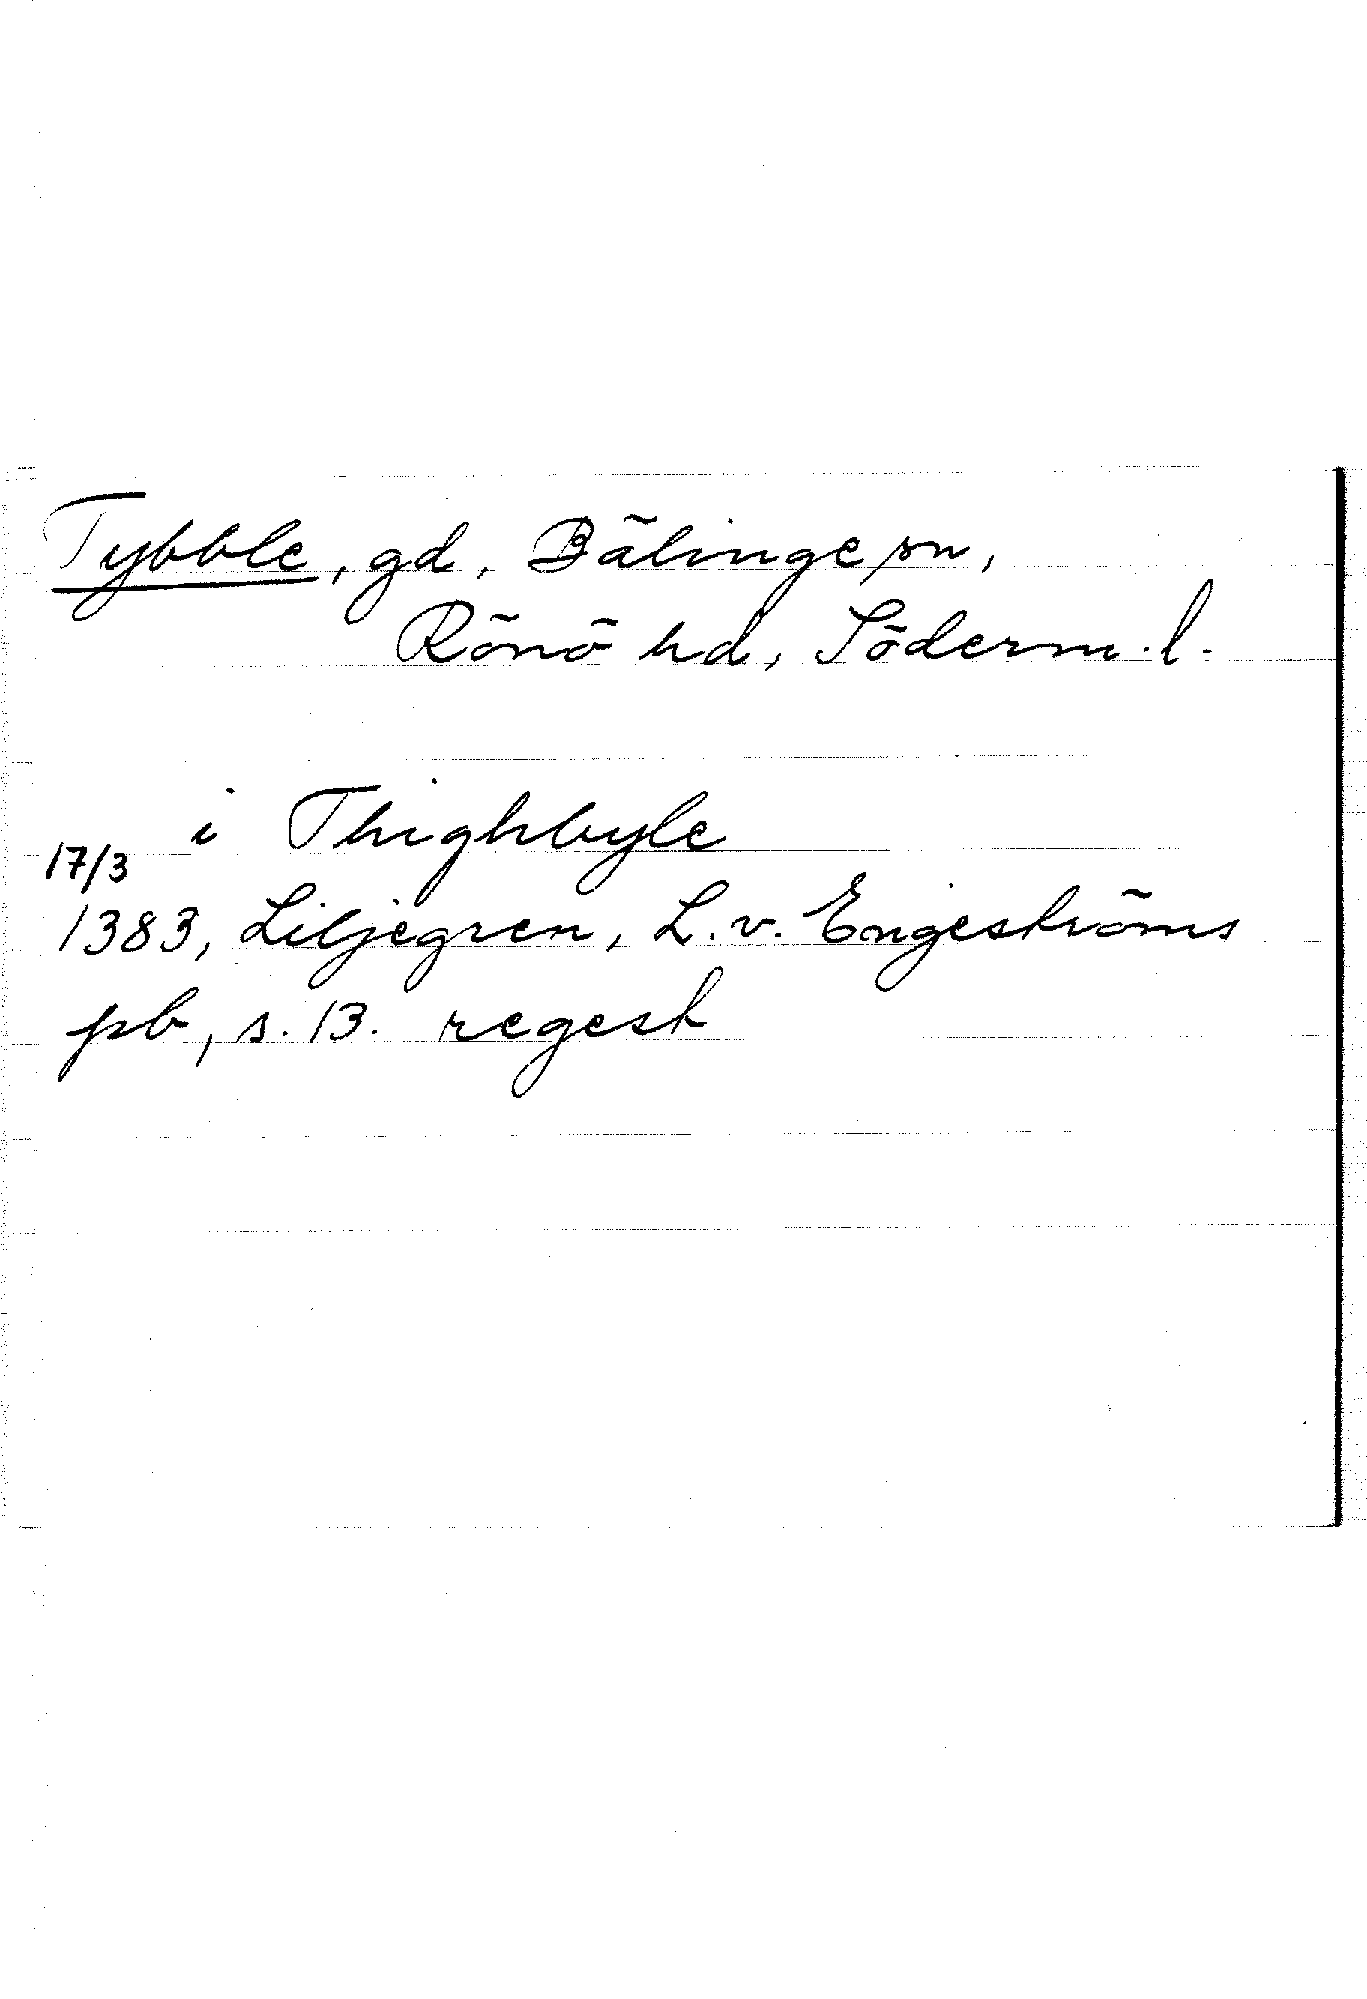 Tybble, gd, Bälinge sn,
Rönö hd, Söderm.l.
i Thighbyle
17/3
1383, Liljegren, L. v. Engeströms
pb, s. 13. regest